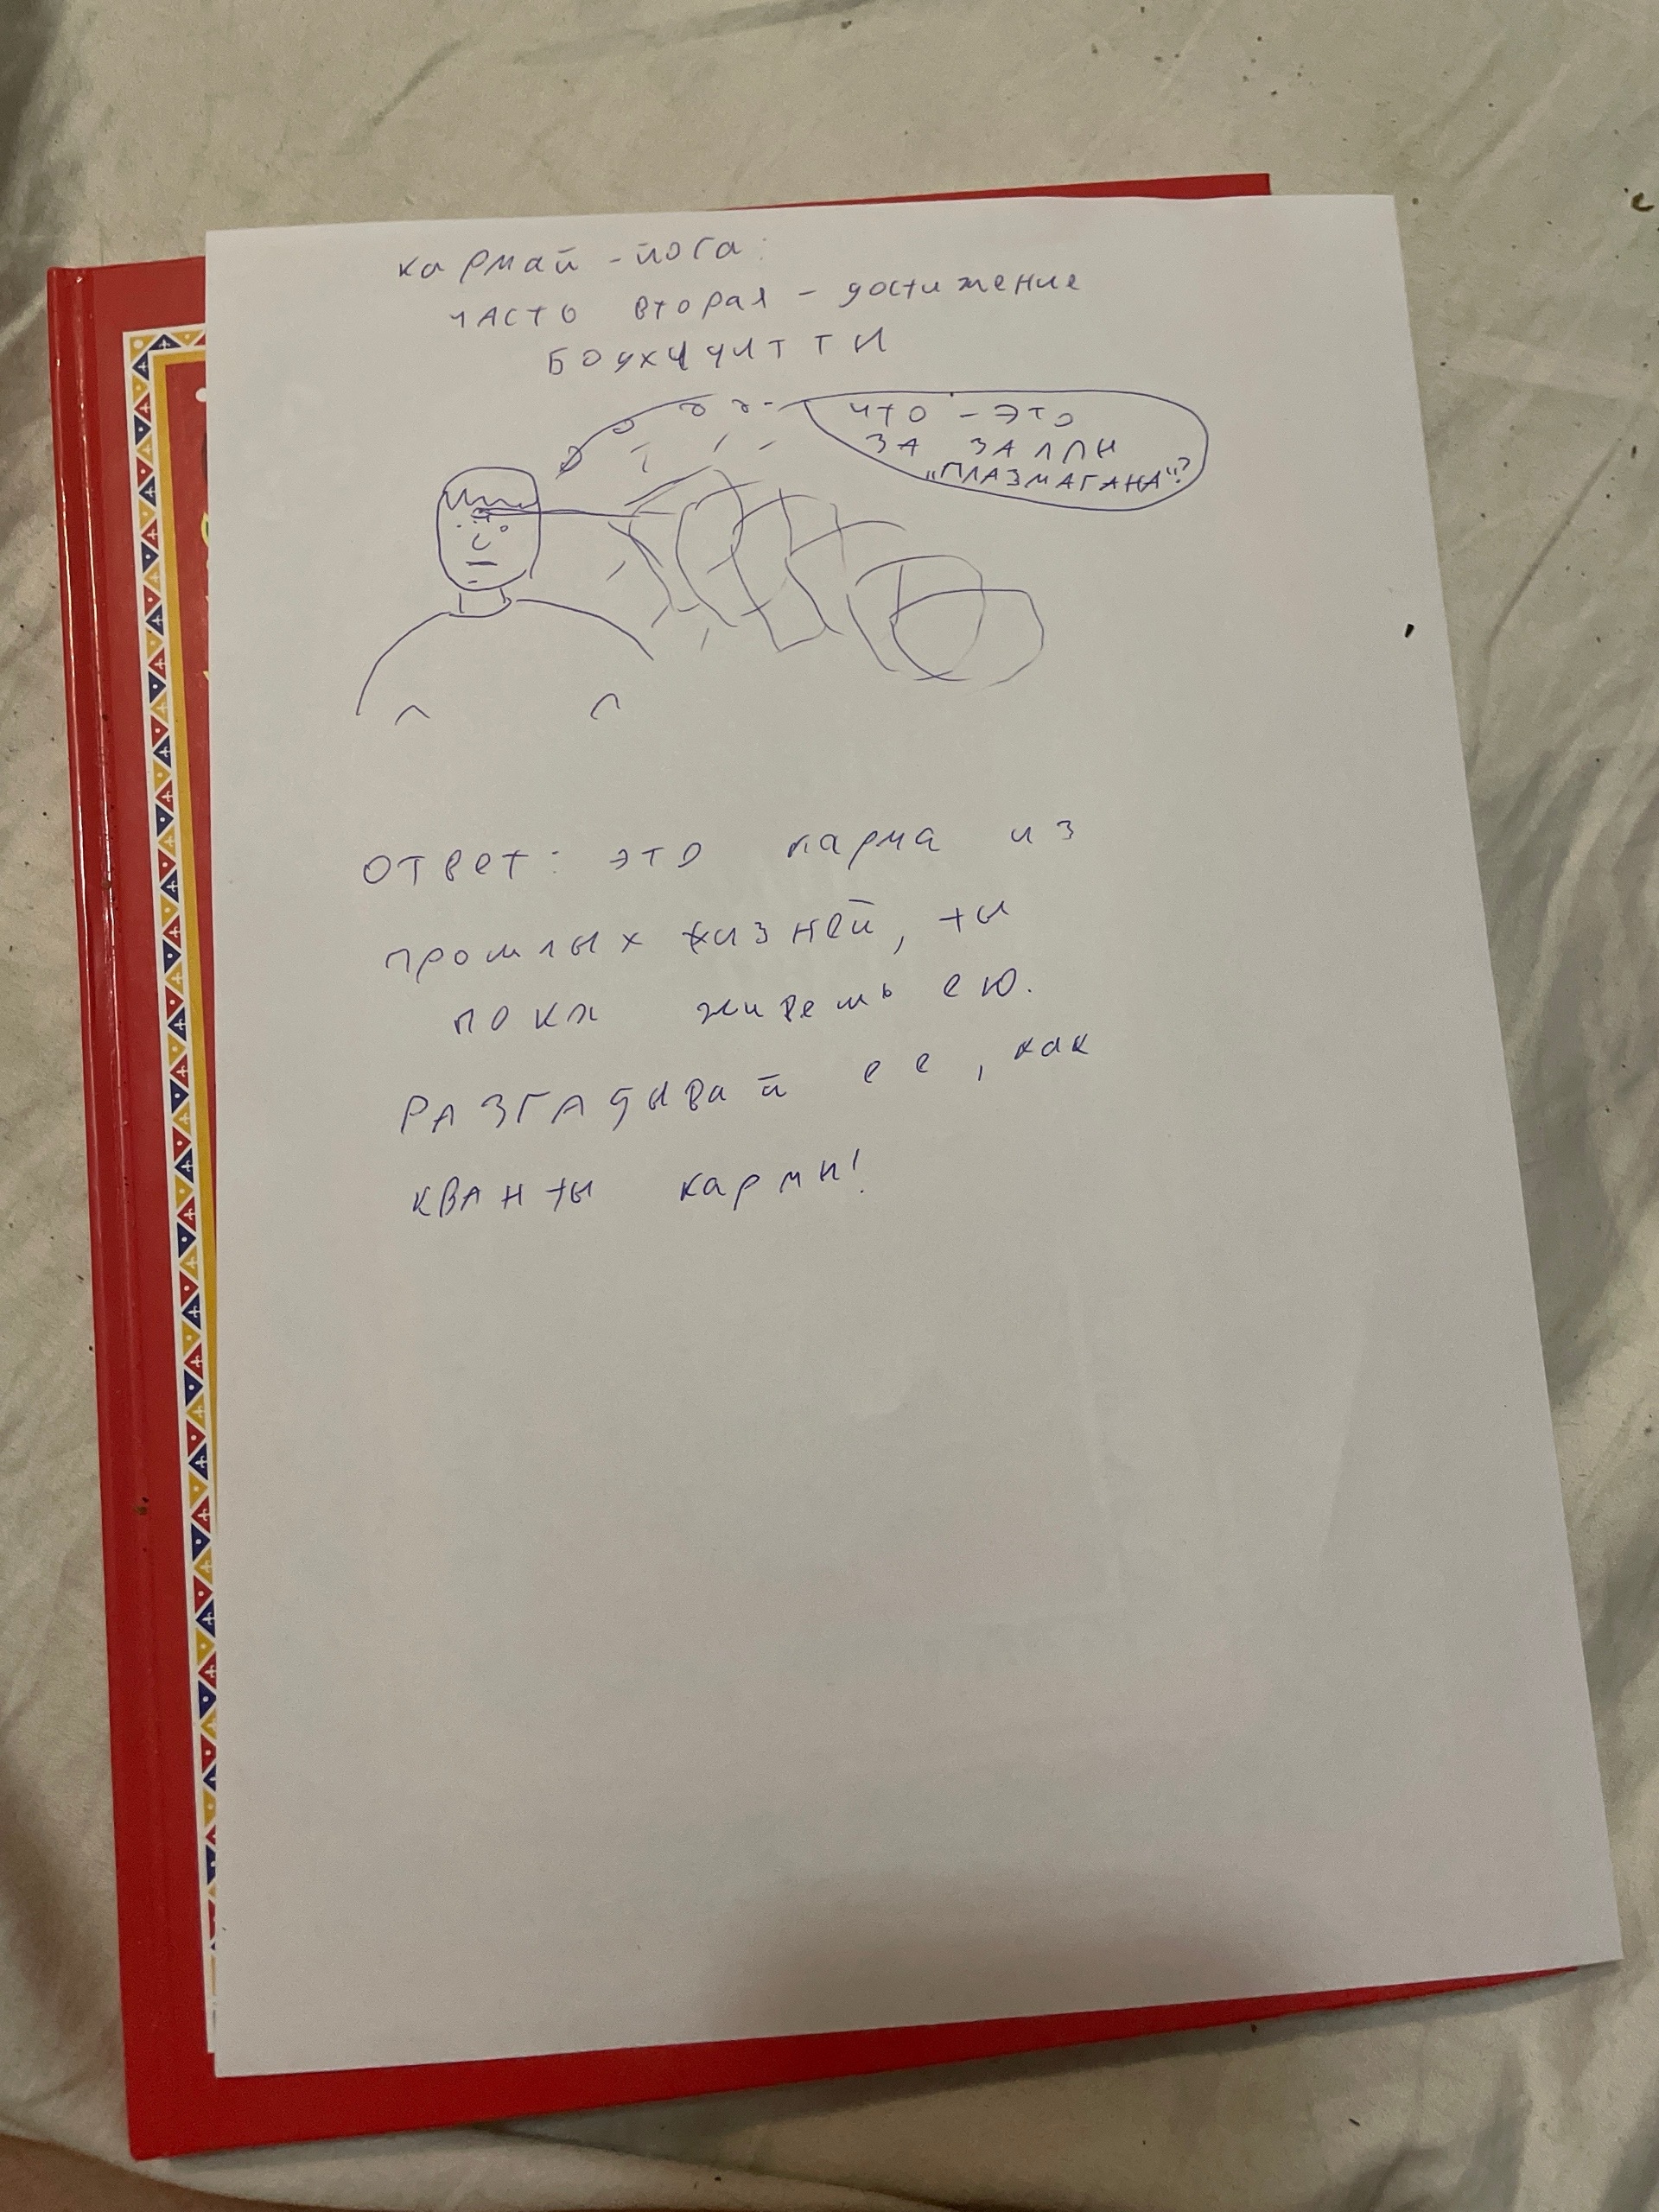 кармай - йога:
часть вторая - достижение
БОДХИЧИТТЫ
ЧТО - ЭТО
ЗА ЗАЛПЫ
„ПЛАЗМАГАНА“?
ответ: это карма из
прошлых жизней, ты
пока живешь ею.
РАЗГАДывай ее, как
КВАНТЫ кармы!